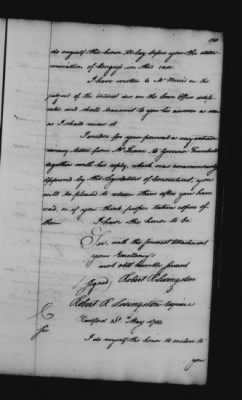 do myself the honor to lay before you the deter-
mination of Congress in this case.
I have written to Mr Morris on the
subject of the interest due on the Loan Office certifi-
cates and shall transmit to you his answer as soon
as I shall receive it.
I enclose for your perusal a very extraor-
dinary letter from Mr to Governor Trumbull
together with his reply, which was unanimously
approved by the Legislature of Connecticut, you
will be pleased to return them after you have
read, or if you think proper take copies of
them. I have the honor to be
Sir, with the greatest attachment
your Excellency's
most obdt humble Servant
Signed, Robert R. Livingston
Robert R. Livingston esquire
Hartford May 1782
Sir
I do myself the honor to enclose to
you